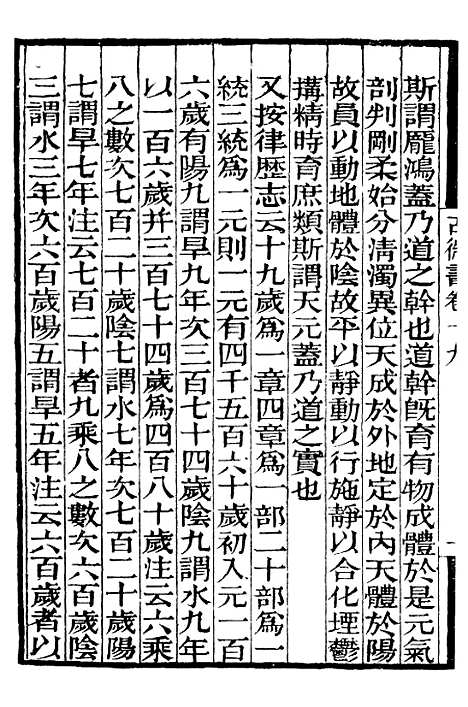 斯謂龎鴻蓋乃道之幹也道幹旣育有物成體於是元氣
剖判剛柔始分清濁異位天成於外地定於內天體於陽
故員以動地體於陰故平以靜動以行施靜以合化堙鬱
搆精時育庶類斯謂天元蓋乃道之實也
又按律歷志云十九歲爲一章四章爲一部二十部爲一
統三統爲一元則一元有四千五百六十歲初入元一百
六歲有陽九謂旱九年次三百七十四歲陰九謂水九年
以一百六歲并三百七十四歲爲四百八十歲注云六乘
八之數次七百二十歲陰七謂水七年次七百二十歲陽
七謂旱七年注云七百二十者九乘八之數次六百歲陰
三謂水三年次六百歲陽五謂旱五年注云六百歲者以
古微書卷十九
一